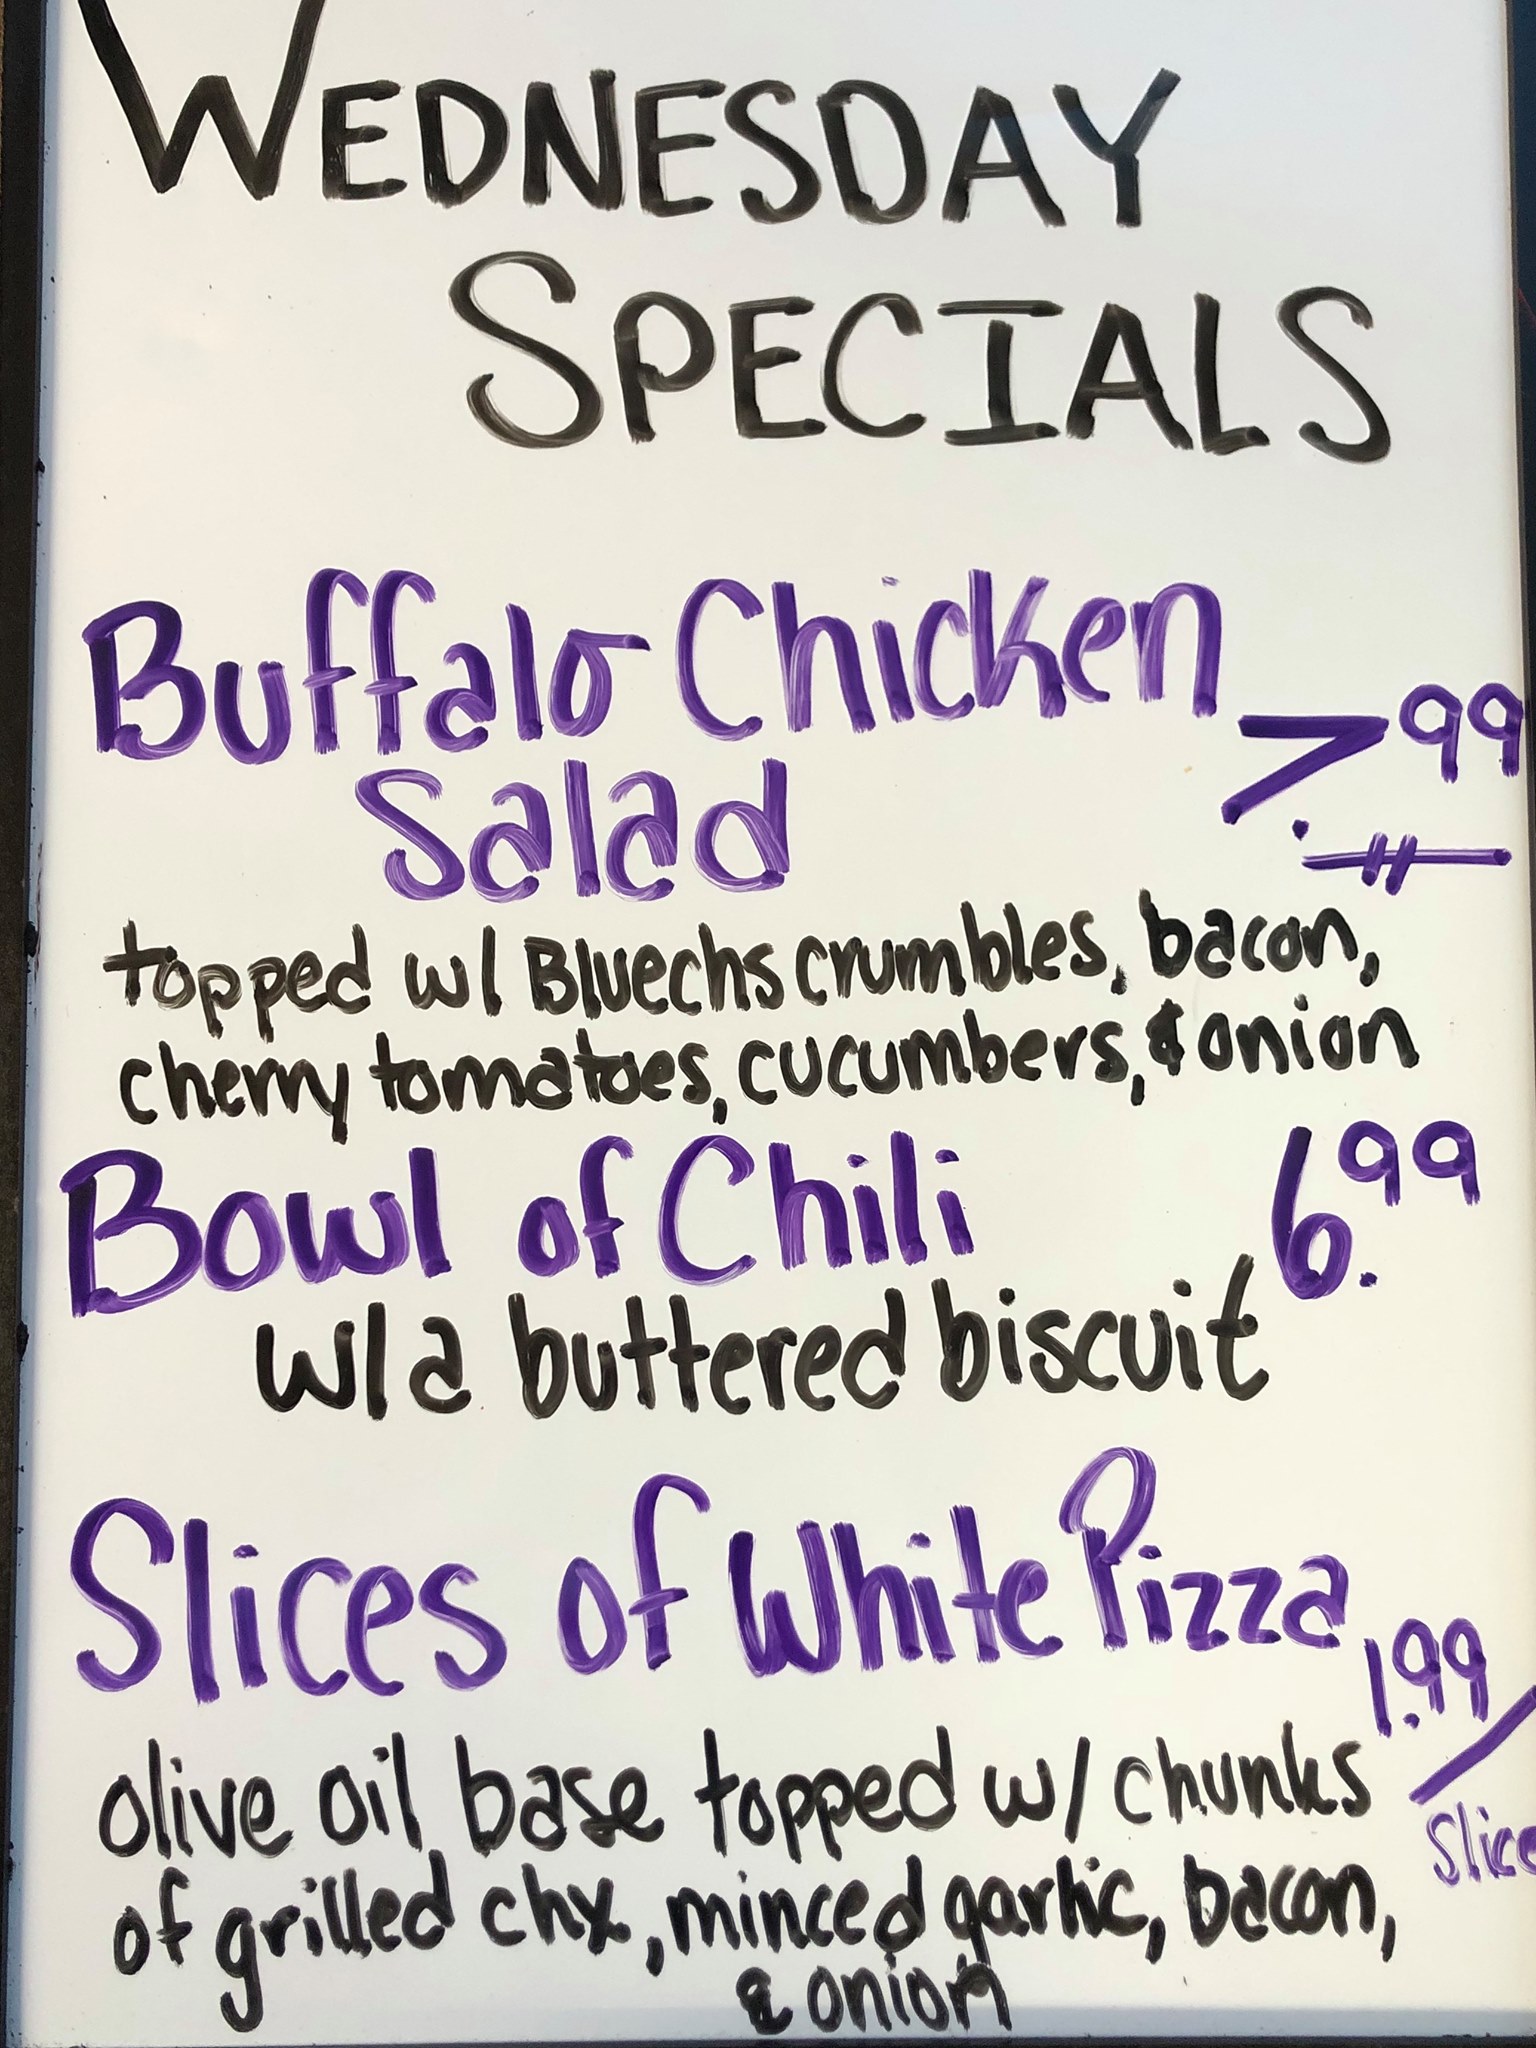 WEDNESDAY
SPECIALS
Buffalo Chicken
Salad 7.99
topped w/ Bluechs crumbles, bacon,
cherry tomatoes, cucumbers, & onion
Bowl of Chili 6.99
w/ a buttered biscuit
Slices of White Pizza 1.99/
Slice
olive oil base topped w/ chunks
of grilled chx, minced garlic, bacon,
& onion